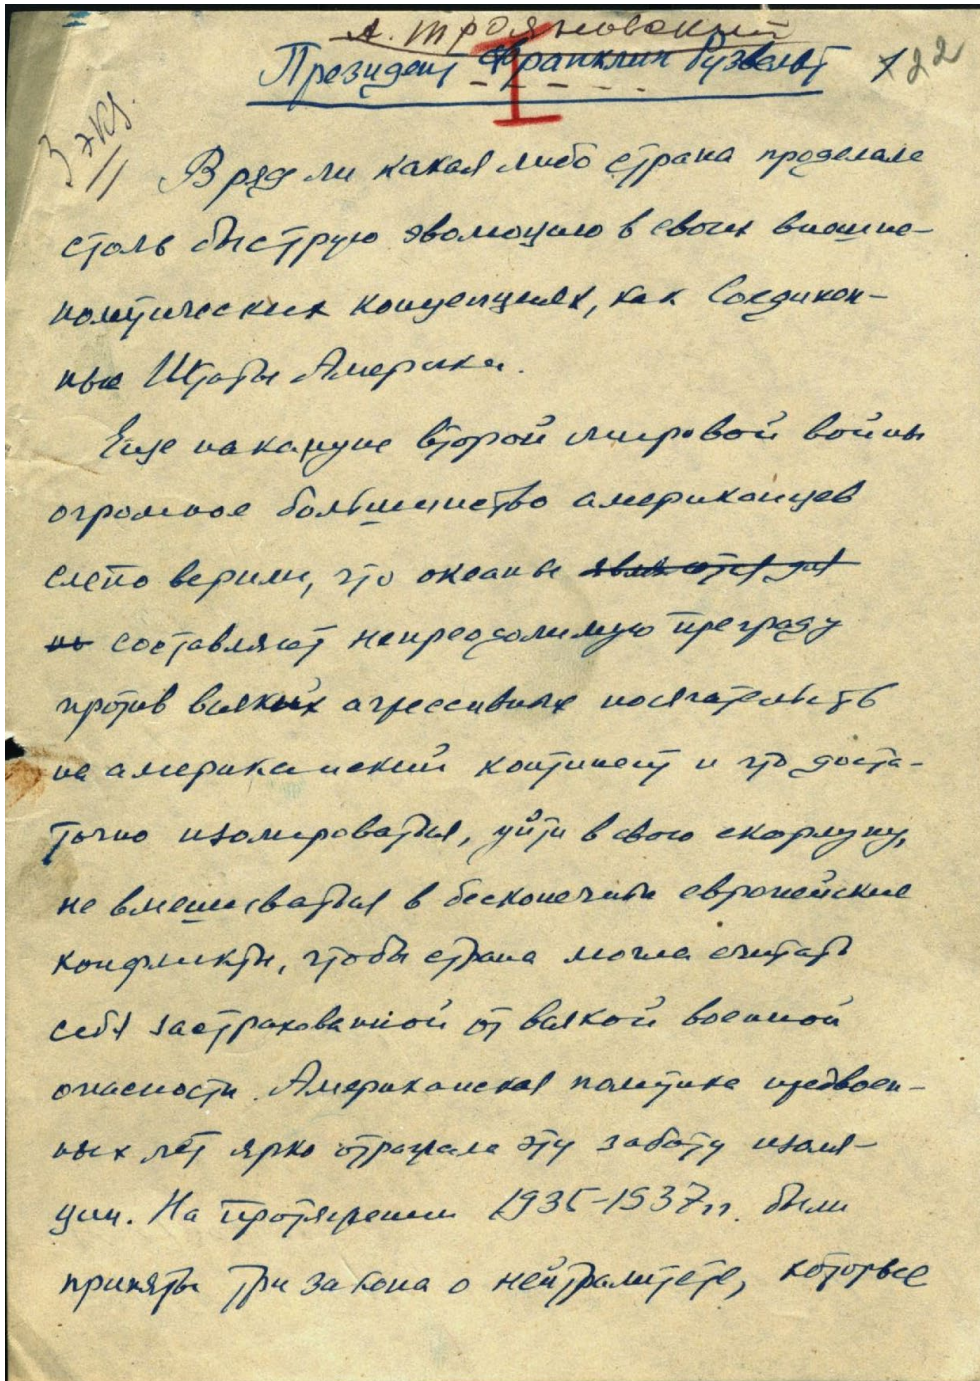 А. Трояновский
Президент Франклин Рузвельт
122
3 экз.
Вряд ли какая либо страна проделала
столь быструю эволюцию в своих внешне-
политических концепциях, как Соединен-
ные Штаты Америки.
Еще накануне второй мировой войны
огромное большинство американцев
слепо верили, что океаны являются для
но составляют непреодолимую преграду
против всяких агрессивных посягательств
на американский континент и что доста-
точно изолироваться, уйти в свою скорлупу,
не вмешиваться в бесконечные европейские
конфликты, чтобы страна могла считать
себя застрахованной от всякой военной
опасности. Американская политика предвоен-
ных лет ярко отражала эту заботу изоля-
ции. На протяжении 1935-1937 гг. были
приняты три закона о нейтралитете, которые